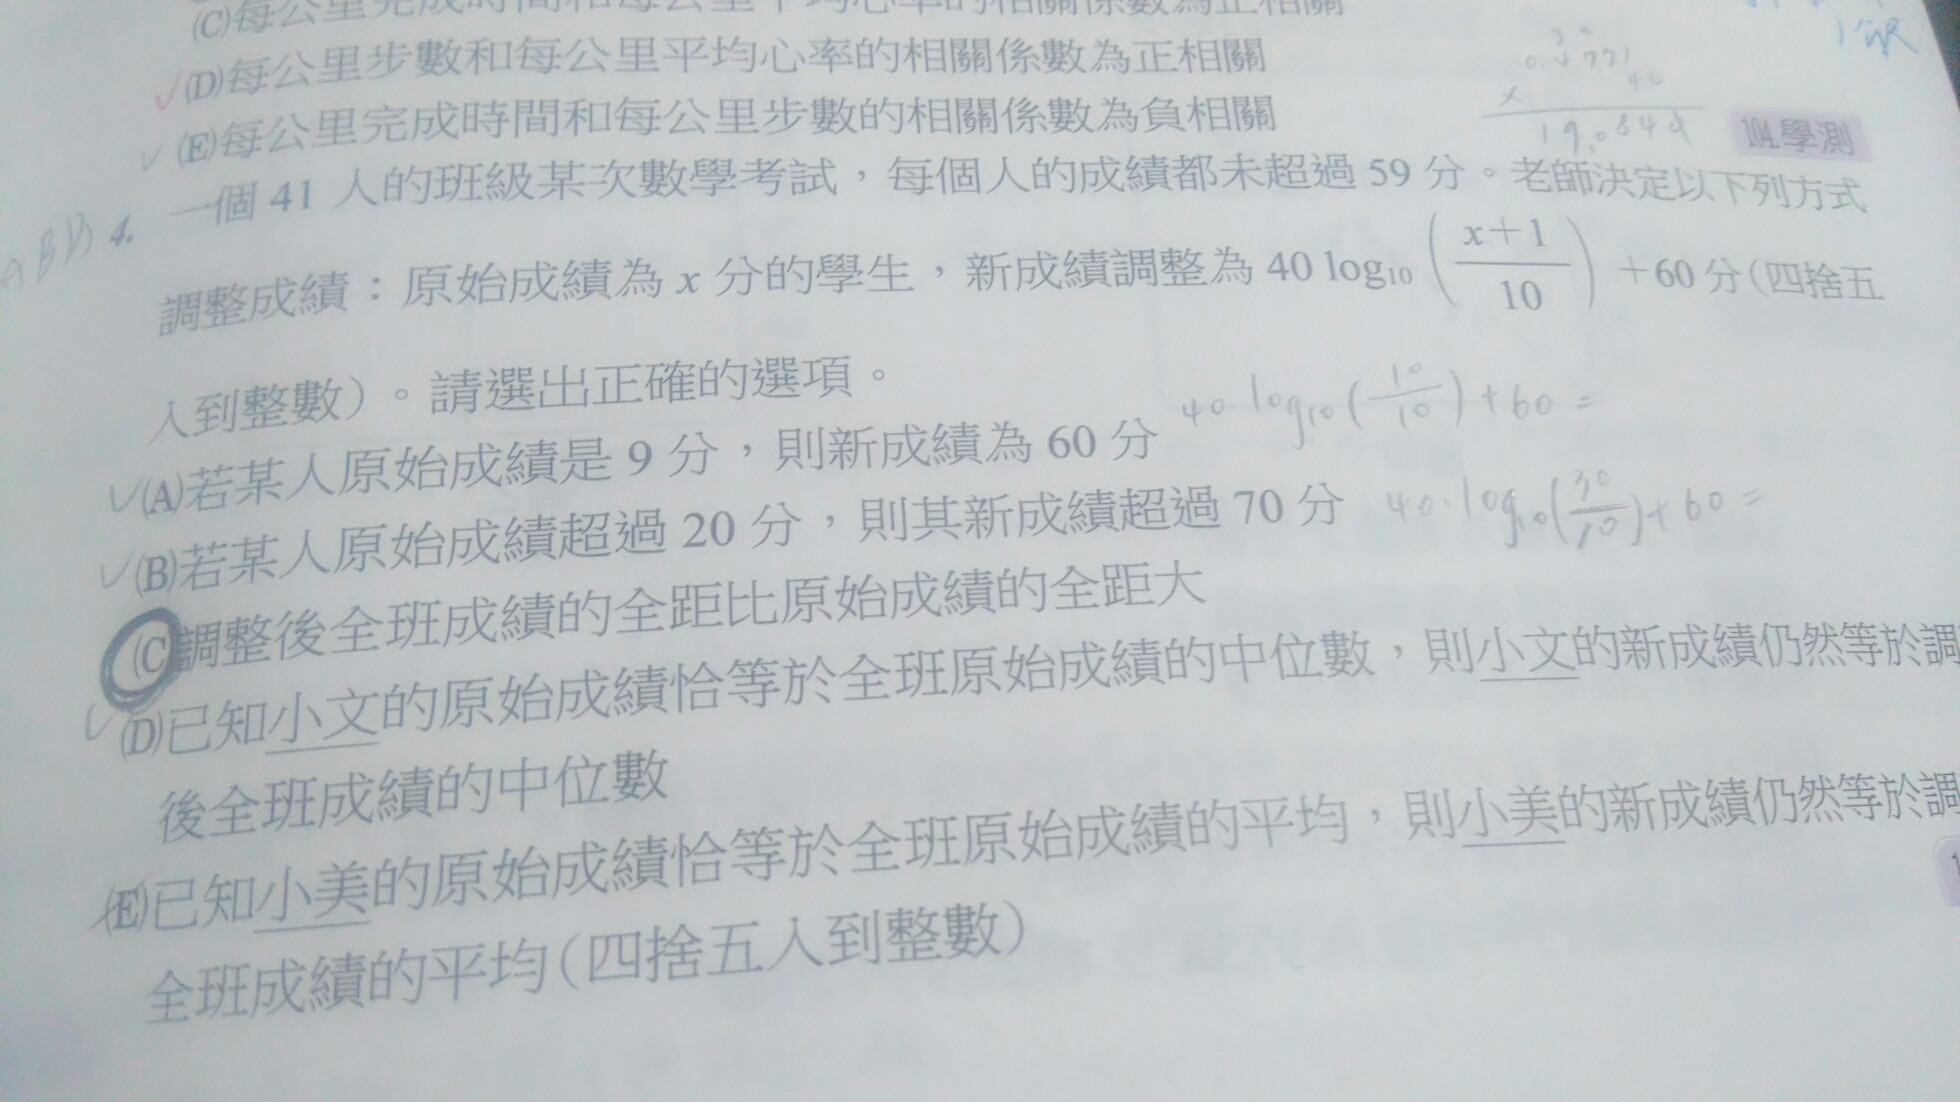 (C)每公里完成時間和每公里平均心率的相關係數為正相關
✓(D)每公里步數和每公里平均心率的相關係數為正相關
✓(E)每公里完成時間和每公里步數的相關係數為負相關
0.4771
40
×
19.084
104.學測
ABD 4. 一個 41 人的班級某次數學考試，每個人的成績都未超過 59 分。老師決定以下列方式
調整成績：原始成績為 x 分的學生，新成績調整為 40 log₁₀ ( (x+1)/10 ) +60 分(四捨五
入到整數)。請選出正確的選項。
✓(A)若某人原始成績是 9 分，則新成績為 60 分 40·log₁₀(10/10)+60=
✓(B)若某人原始成績超過 20 分，則其新成績超過 70 分 40·log₁₀(30/10)+60=
(C)調整後全班成績的全距比原始成績的全距大
✓(D)已知小文的原始成績恰等於全班原始成績的中位數，則小文的新成績仍然等於調
後全班成績的中位數
(E)已知小美的原始成績恰等於全班原始成績的平均，則小美的新成績仍然等於調
全班成績的平均(四捨五入到整數)